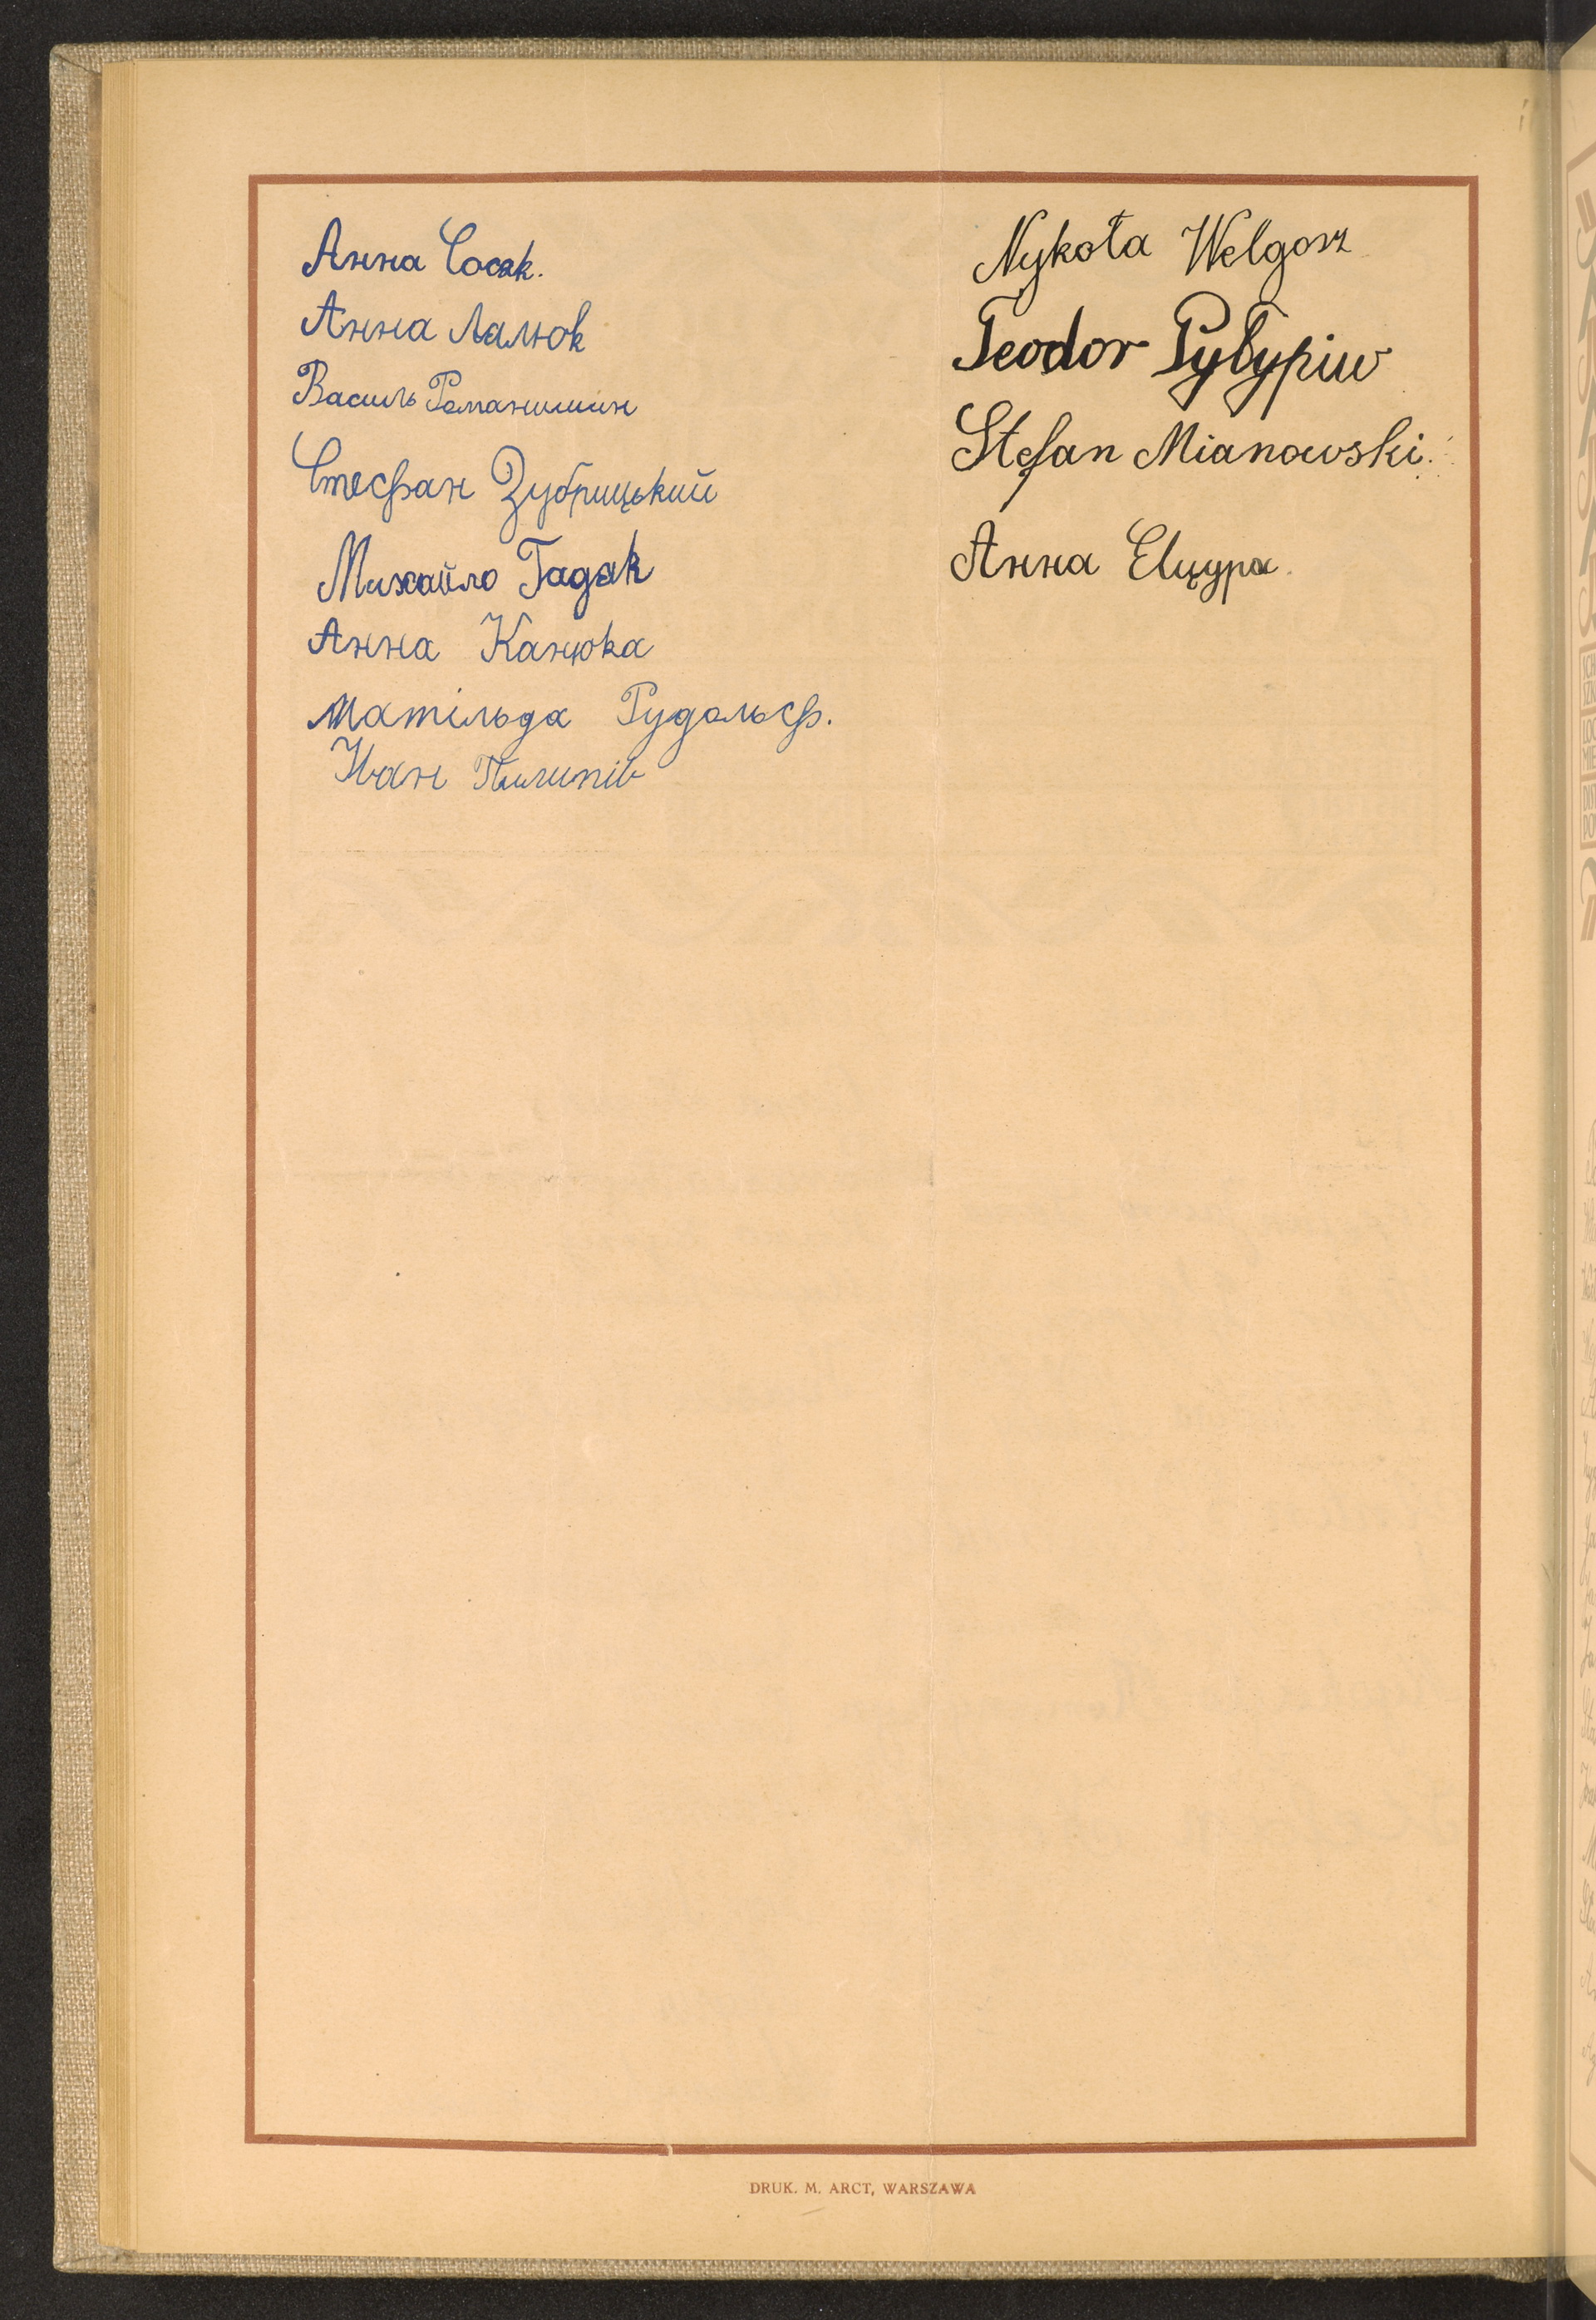 Анна Сосяк.
Анна Лалюк
Василь Романишин
Стефан Зубрицький
Михайло Гадяк
Анна Канюка
Матільда Рудольф.
Иван Пилипів
Nykoła Welgosz
Teodor Pyłypiw
Stefan Mianowski.
Анна
DRUK. M. ARCT, WARSZAWA